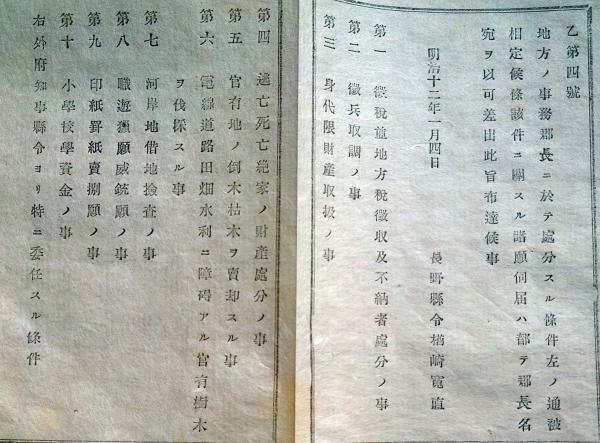 乙第四號
地方ノ事務郡長ニ於テ處分スル條件左ノ通被
相定候條該件ニ關スル諸願伺届ハ都テ郡長名
宛ヲ以可差出此旨布達候事
明治十二年一月四日
長野縣令楢崎寬直
第一 徵税並地方税徵收及不納者處分ノ事
第二 徵兵取調ノ事
第三 身代限財產取扱ノ事
第四 逃亡死亡絶家ノ財產處分ノ事
第五 官有地ノ倒木枯木ヲ賣却スル事
第六 電線道路田畑水利ニ障碍アル官有樹木
ヲ伐採スル事
第七 河岸地借地檢査ノ事
第八 職遊獵願威銃願ノ事
第九 印紙罫紙賣捌願ノ事
第十 小學校學資金ノ事
右外府知事縣令ヨリ特ニ委任スル條件